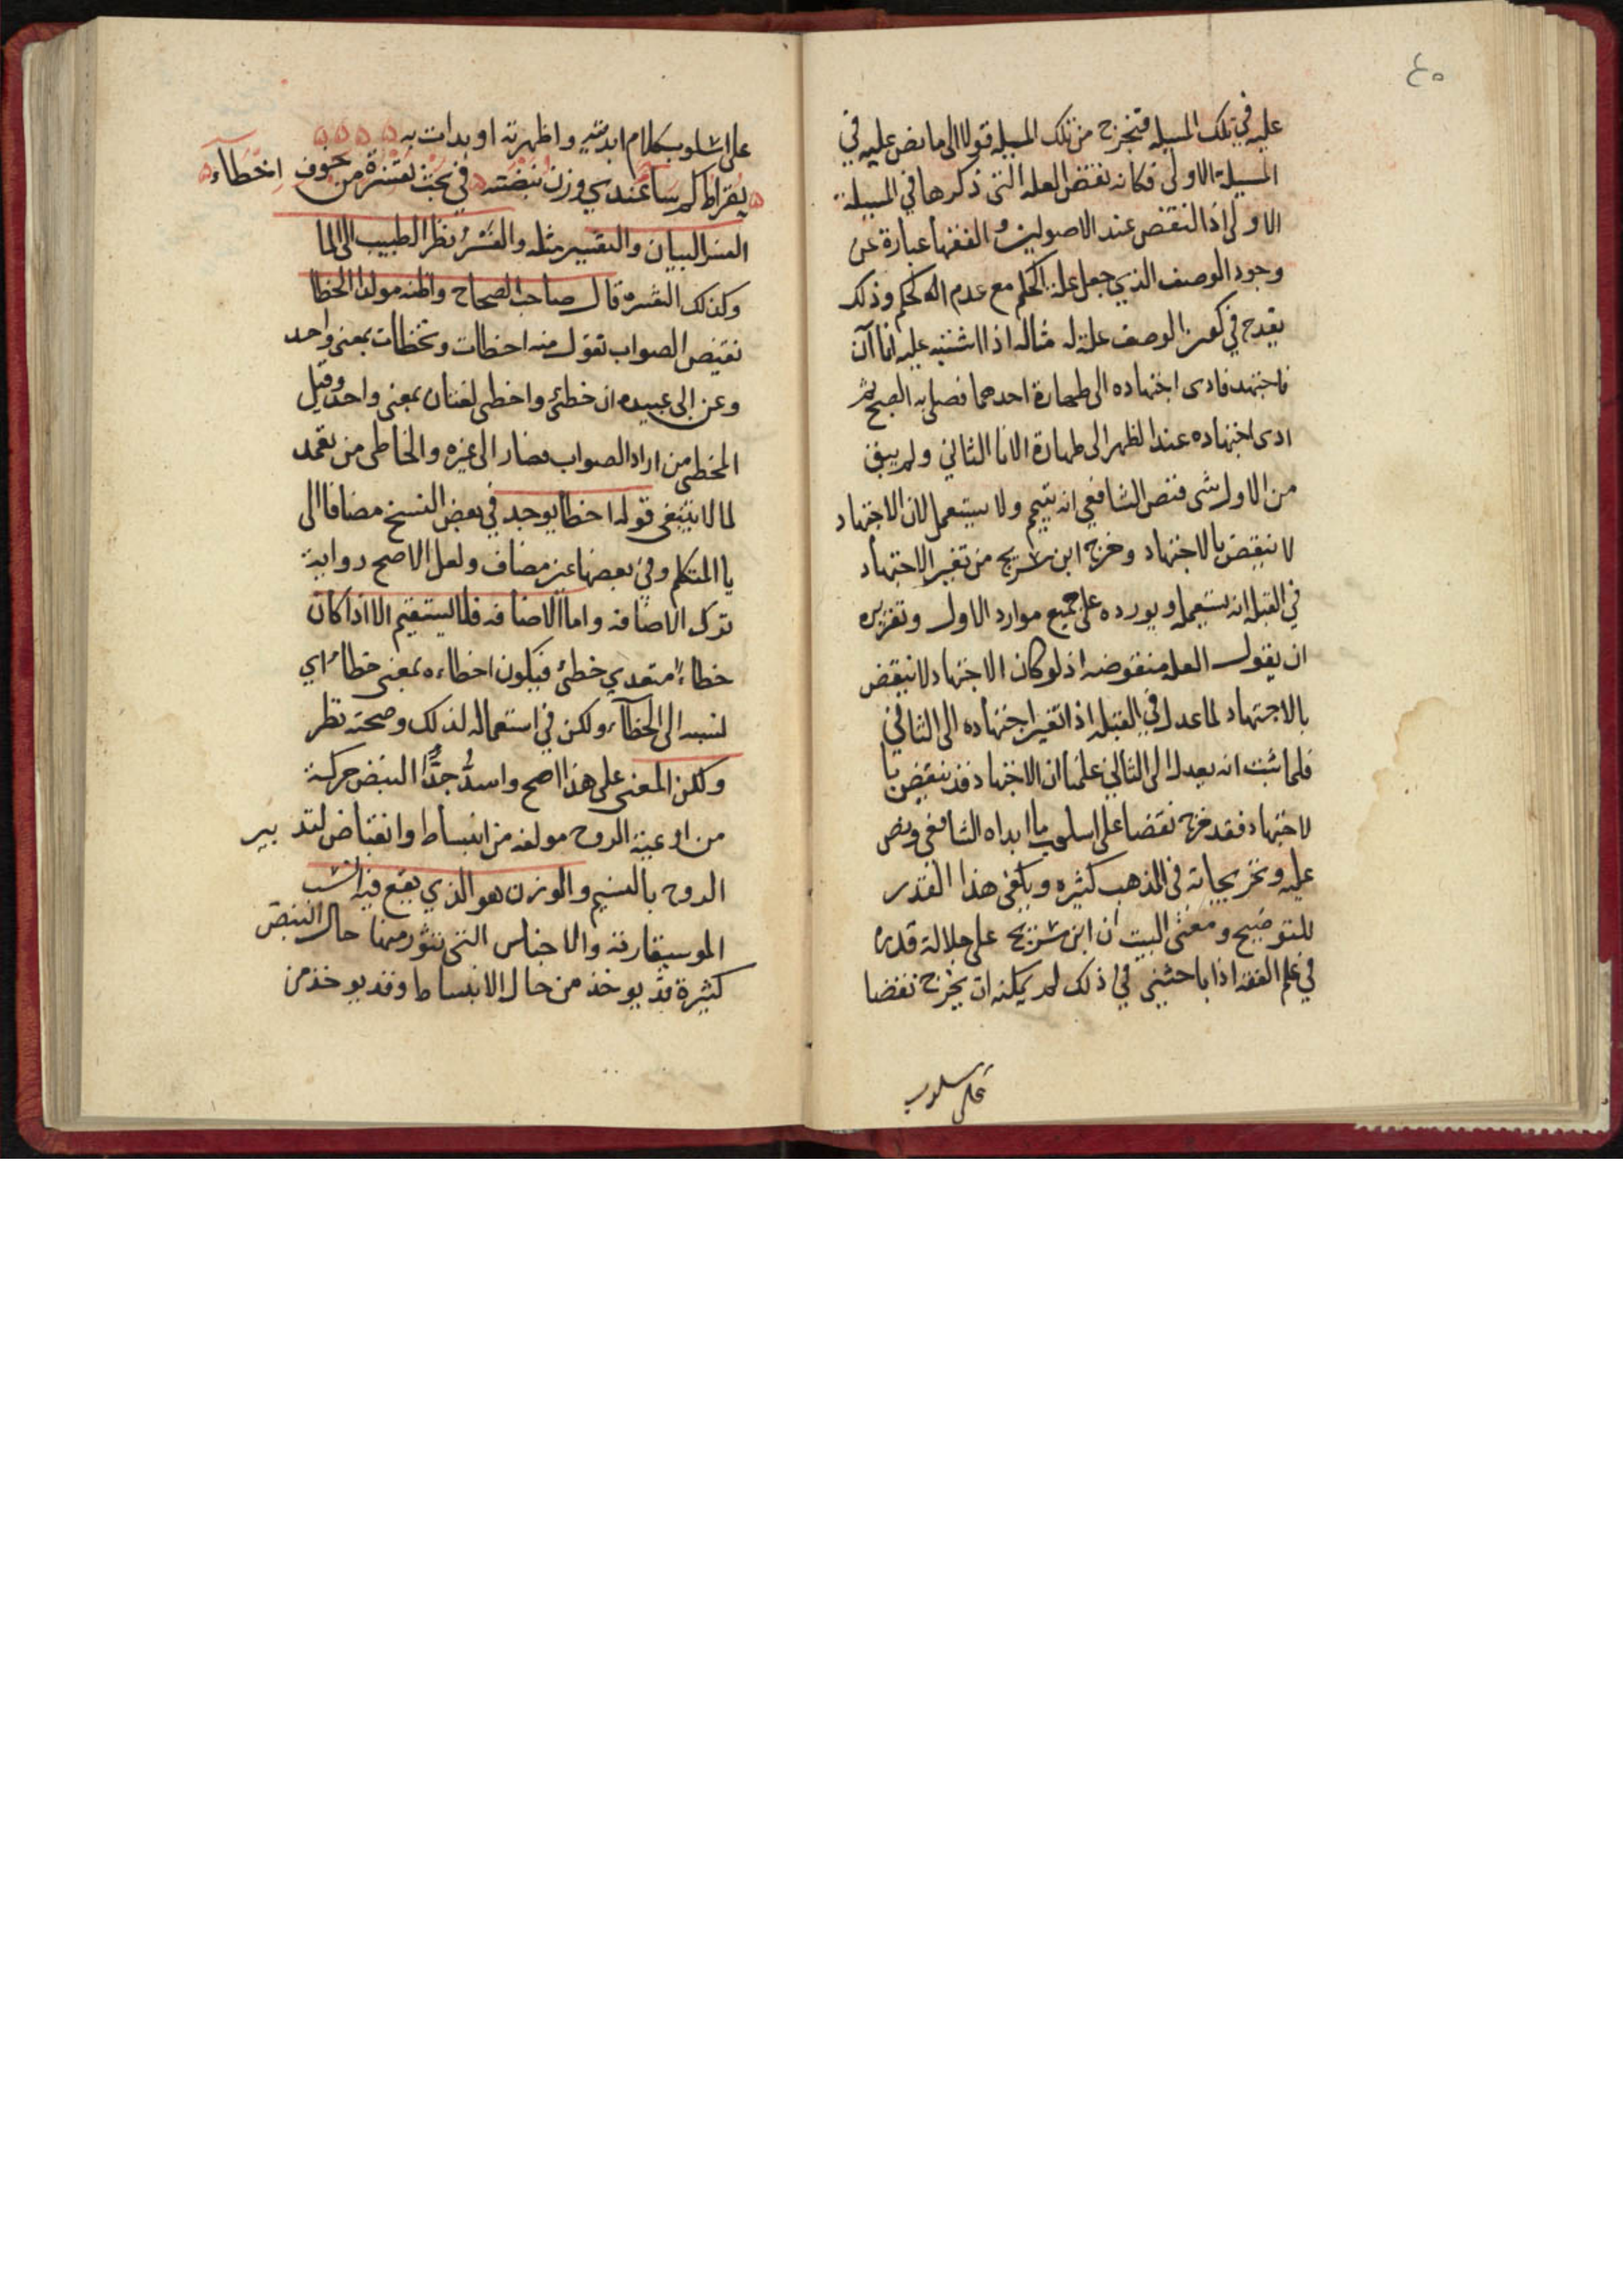 ٤٥
عليه في تلك المسيله فتخرج من تلك المسيله قولا الى ما نص عليه في
المسيلة الاولى فكانه نقض العله التى ذكرها في المسيلة
الاولى اذ النقض عند الاصوليين والفقها عبارة عن
وجود الوصف الذي جعل علة الحكم مع عدم الحكم وذلك
يقدح في كون الوصف علة له مثاله اذا اشتبه عليه اناآن
فاجتهد فادى اجتهاده الى طهارة احدهما فصلى به الصبح ثم
ادى اجتهاده عند الظهر الى طهارة الانا الثاني ولم يبق
من الاول شى فنص الشافعي انه يتيمم ولا يستعمل لان الاجتهاد
لا ينقض بالاجتهاد وخرج ابن شريح من تغير الاجتهاد
في القبله انه يستعمله ويورده على جميع موارد الاول وتقريره
ان يقول العله منقوضه اذ لو كان الاجتهاد لا ينقض
بالاجتهاد لما عدل في القبله اذا تغير اجتهاده الى الثاني
فلما ثبت انه يعدل الى الثاني علمنا ان الاجتهاد قد ينقض با
لاجتهاد فقد خرج نقضا على اسلوب ما ابداه الشافعي ونص
عليه وتخريجاته في المذهب كثيره ويكفى هذا القدر
للتوضيح ومعنى البيت ان ابن شريح على جلالة قدره
في علم الفقه اذا باحثنى في ذلك لم يمكنه ان يخرج نقضا
على اسلوب
على اسلوب كلام ابديته واظهرته او بدات به
بقراط كم سا عندي وزن نبضته في بحث تفسرة من خوف اخطاء
الفسر البيان والتفسير مثله والفسر نظر الطبيب الى الما
وكذلك التفسرة قال صاحب الصحاح واظنه مولدا الخطا
نقيض الصواب تقول منه اخطات وتخطات بمعنى واحد
وعن ابى عبيده ان خطئ واخطى لغتان بمعنى واحد وقيل
المخطى من اراد الصواب فصار الى غيره والخاطى من تعمد
لما لا ينبغى قوله اخطا يوجد في بعض النسخ مضافا الى
يا المتكلم وفي بعضها غير مضاف ولعل الاصح رواية
ترك الاضافه واما الاضافه فلا يستقيم الا اذا كان
خطاء متعدي خطئ فيكون اخطاءه بمعنى خطاه اي
نسبه الى الخطاء ولكن في استعماله لذلك وصحته نظر
ولكن المعنى على هذا اصح واسد جدا النبض حركة
من اوعية الروح مولفه من انبساط وانقباض لتدبير
الروح بالنسيم والوزن هو الذي يقع فيه النسب
الموسيقارية والاجناس التى منها حال النبض
كثيرة قد يوخذ من حال الانبساط وقد يوخذ من